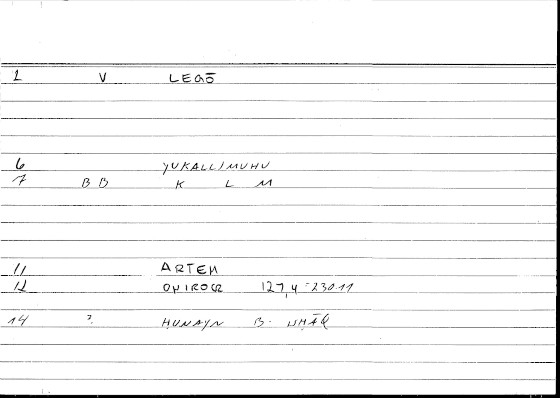 1 V LEGŌ
6 YUKALLIMUHU
7 BB K L M
11 ARTEM
12 ONIROCR 127,4 = 230.11
14 ? HUNAYN B. ISHĀQ